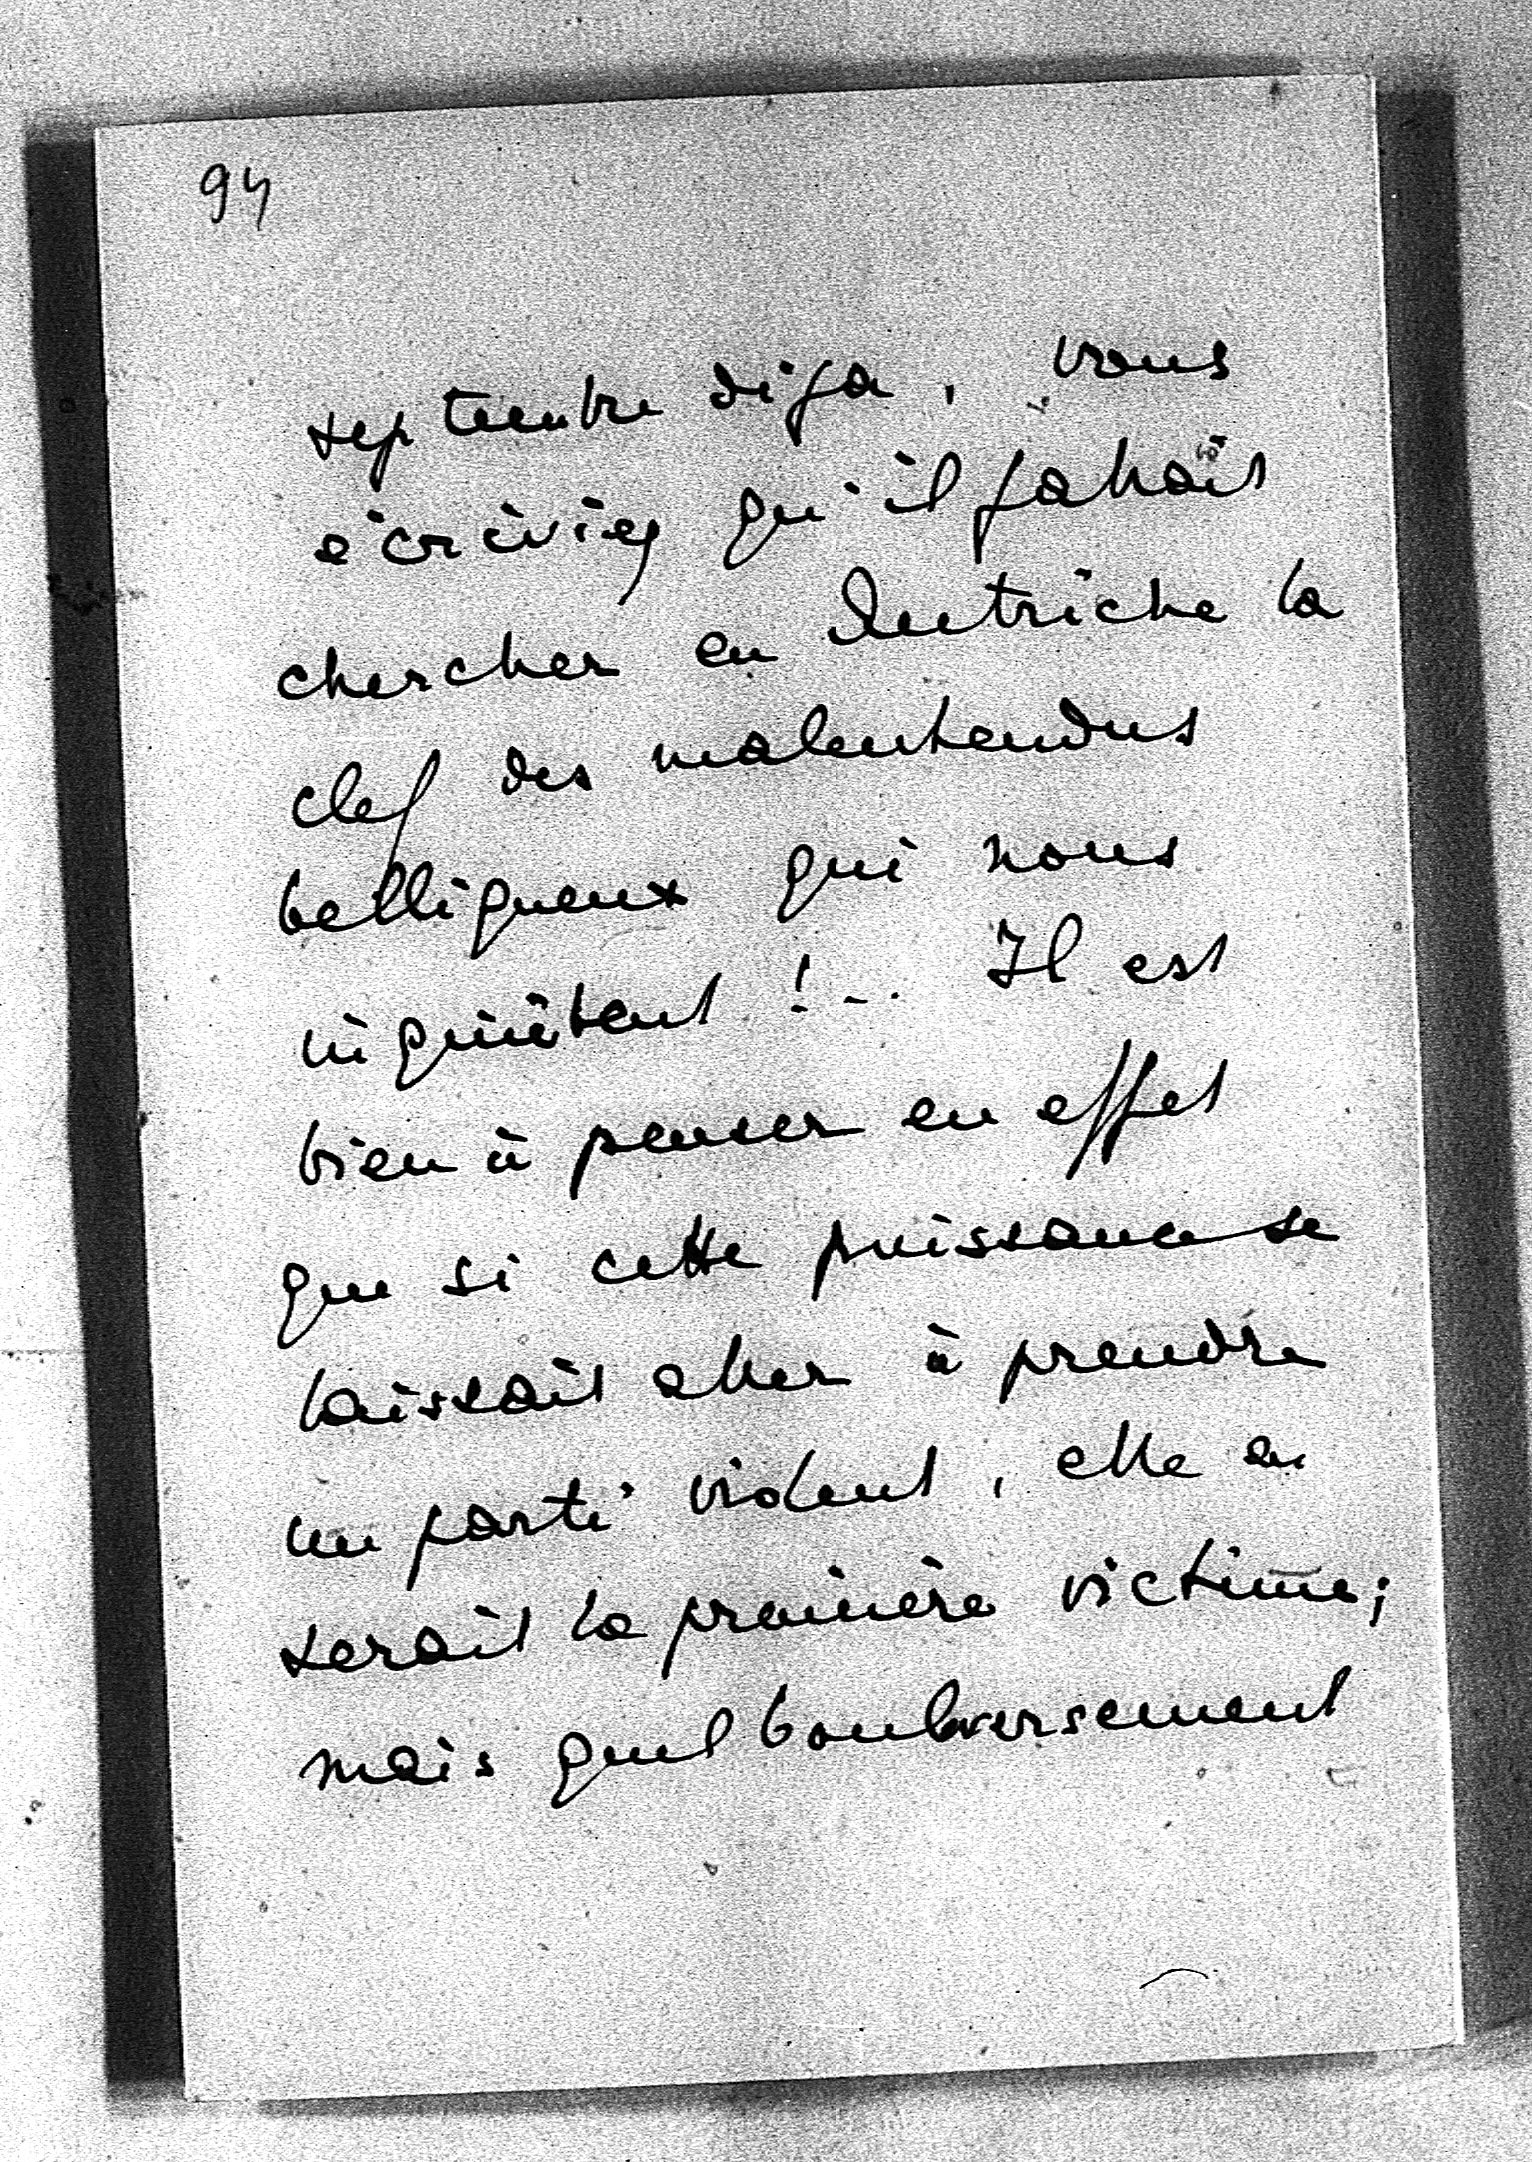 94
septembre déja, vous
écriviez qu'il fallait
chercher en Autriche la
clef des malentendus
belliqueux qui nous
inquiètent !... Il est
bien à penser en effet
que si cette puissance se
laissait aller à prendre
un parti violent, elle en
serait la première victime;
mais quel bouleversement